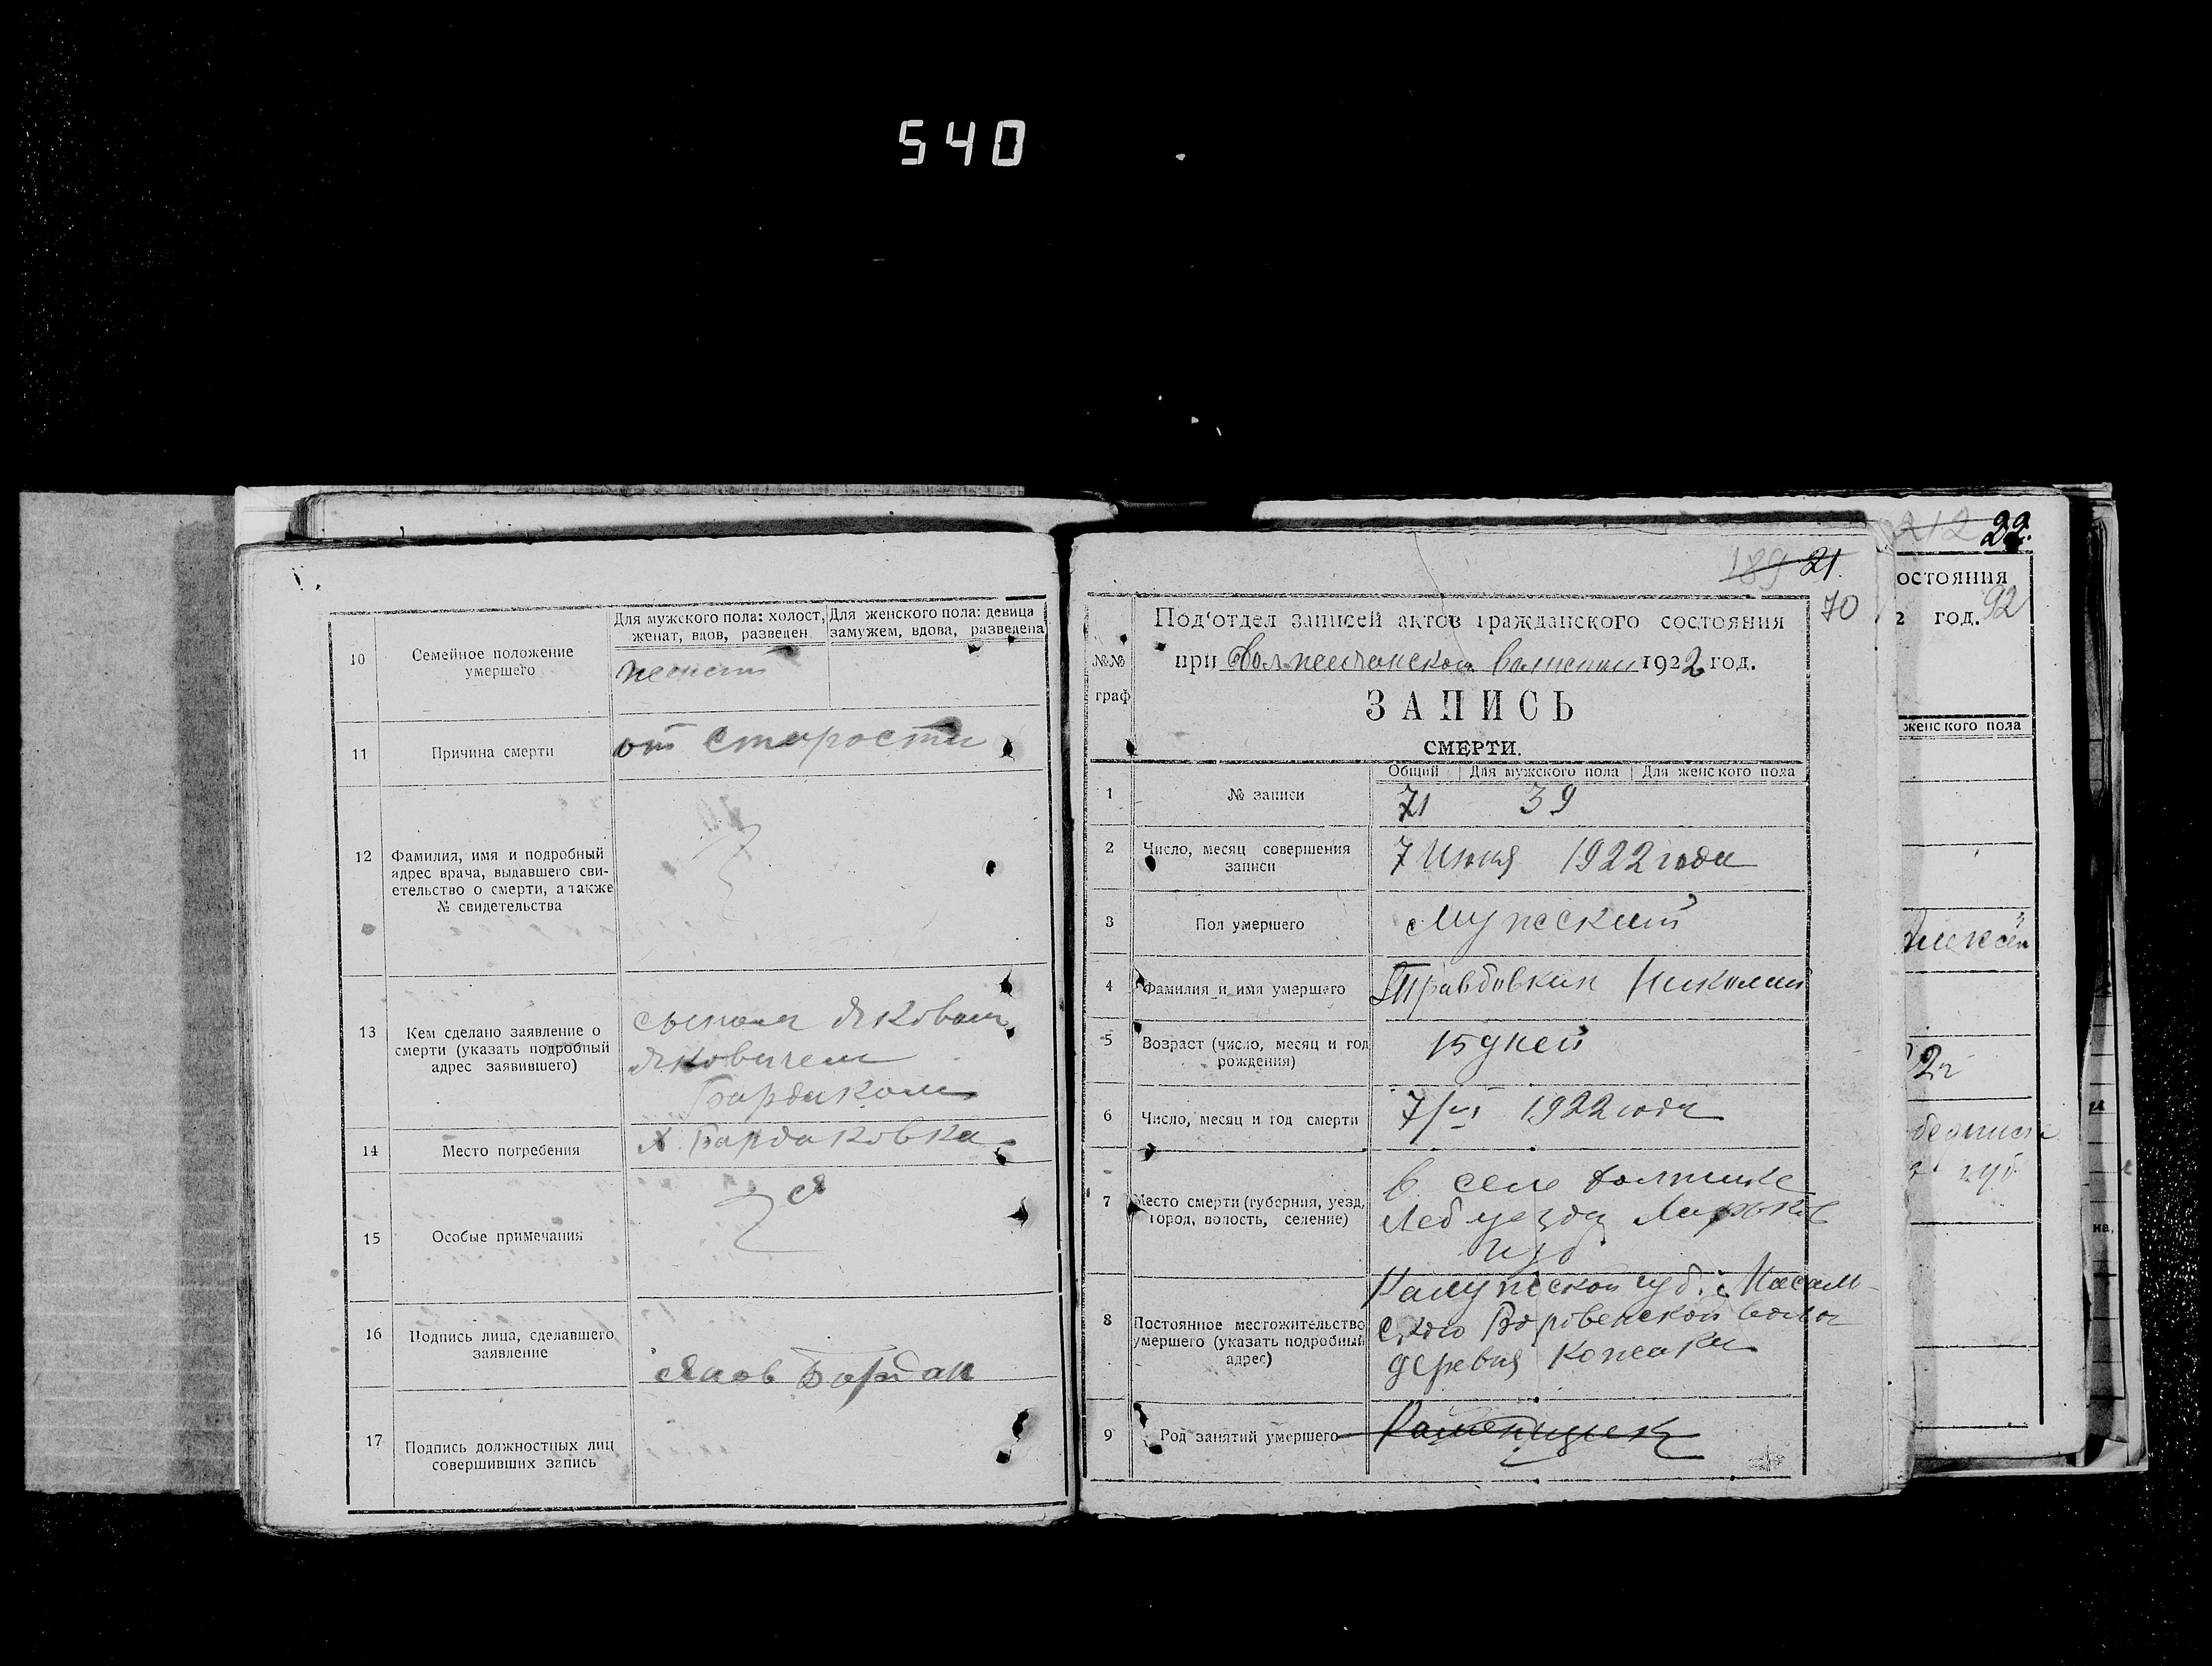 540
10
Семейное положение
умершего
Для мужского пола: холост,
женат, вдов, разведен
Для женского пола: девица
замужем, вдова, разведена
женат
11
Причина смерти
от старости
12
Фамилия, имя и подробный
адрес врача, выдавшего сви-
етельство о смерти, а также
№ свидетельства
13
Кем сделано заявление о
смерти (указать подробный
адрес заявившего)
сыном Яковом
Яковичем
Бардаком
14
Место погребения
х. Бардаковка
15
Особые примечания
16
Подпись лица, сделавшего
заявление
Яков Бардак
17
Подпись должностных лиц
совершивших запись
189 21.
70
№№
граф
Под'отдел записей актов гражданского состояния
при 1922 год.
ЗАПИСЬ
СМЕРТИ.
Общий Для мужского пола Для женского пола
1
№ записи
71 39
2
Число, месяц совершения
записи
7 Июня 1922 года
3
Пол умершего
Мужской
4
Фамилия и имя умершего
Николай
5
Возраст (число, месяц и год
рождения)
15 дней
6
Число, месяц и год смерти
7/VI 1922 года
7
Место смерти (губерния, уезд,
город, волость, селение)
в селе
Леб уезда Харьков
губ
8
Постоянное местожительство
умершего (указать подробный
адрес)
Калужской губ.
деревня
9
Род занятий умершего
212 22.
остояния
2 год. 92
женского пола
Алексей
2г
губ
на,